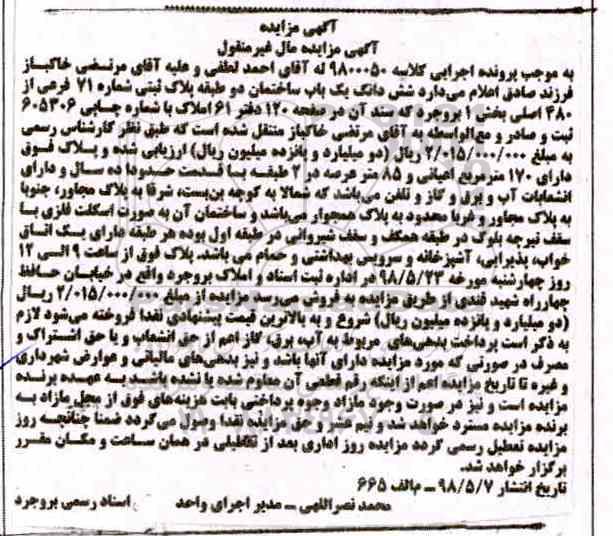 آگهی مزایده
آگهی مزایده مال غیرمنقول
به موجب پرونده اجرایی کلاسه ۹۸۰۰۰۵۰ له آقای احمد لطفی و علیه آقای مرتضی خاکباز
فرزند صادق اعلام می‌دارد شش دانگ یک باب ساختمان دو طبقه پلاک ثبتی شماره ۷۱ فرعی از
۳۸۰ اصلی بخش ۱ بروجرد که سند آن در صفحه ۱۲۰ دفتر ۶۱ املاک با شماره چاپی ۶۰۵۳۰۶
ثبت و صادر و مع‌الواسطه به آقای مرتضی خاکباز منتقل شده است که طبق نظر کارشناس رسمی
به مبلغ ۲/۰۱۵/۰۰۰/۰۰۰ ریال (دو میلیارد و پانزده میلیون ریال) ارزیابی شده و پلاک فوق
دارای ۱۷۰ مترمربع اعیانی و ۸۵ متر عرصه در ۲ طبقه با قدمت حدودا ده سال و دارای
انشعابات آب و برق و گاز و تلفن می‌باشد که شمالا به کوچه بن‌بست، شرقا به پلاک مجاور، جنوبا
به پلاک مجاور و غربا محدود به پلاک همجوار می‌باشد و ساختمان آن به صورت اسکلت فلزی با
سقف تیرچه بلوک در طبقه همکف و سقف شیروانی در طبقه اول بوده هر طبقه دارای یک اتاق
خواب، پذیرایی، آشپزخانه و سرویس بهداشتی و حمام می باشد. پلاک فوق از ساعت ۹ الی ۱۲
روز چهارشنبه مورخه ۹۸/۵/۲۳ در اداره ثبت اسناد و املاک بروجرد واقع در خیابان حافظ
چهارراه شهید قندی از طریق مزایده به فروش می‌رسد مزایده از مبلغ ۲/۰۱۵/۰۰۰/۰۰۰ ریال
(دو میلیارد و پانزده میلیون ریال) شروع و به بالاترین قیمت پیشنهادی نقدا فروخته می‌شود لازم
به ذکر است پرداخت بدهی‌های مربوط به آب، برق، گاز اعم از حق انشعاب و یا حق اشتراک و
مصرف در صورتی که مورد مزایده دارای آنها باشد و نیز بدهی‌های مالیاتی و عوارض شهرداری
و غیره تا تاریخ مزایده اعم از اینکه رقم قطعی آن معلوم شده یا نشده باشد به عهده برنده
مزایده است و نیز در صورت وجود مازاد وجوه پرداختی بابت هزینه‌های فوق از محل مازاد به
برنده مزایده مسترد خواهد شد و نیم عشر و حق مزایده نقدا وصول می‌گردد ضمناً چنانچه روز
مزایده تعطیل رسمی گردد مزایده روز اداری بعد از تعطیلی در همان ساعت و مکان مقرر
برگزار خواهد شد.
تاریخ انتشار ۹۸/۵/۷ ـ م‌الف ۶۶۵
محمد نصراللهی ـ مدیر اجرای واحد اسناد رسمی بروجرد